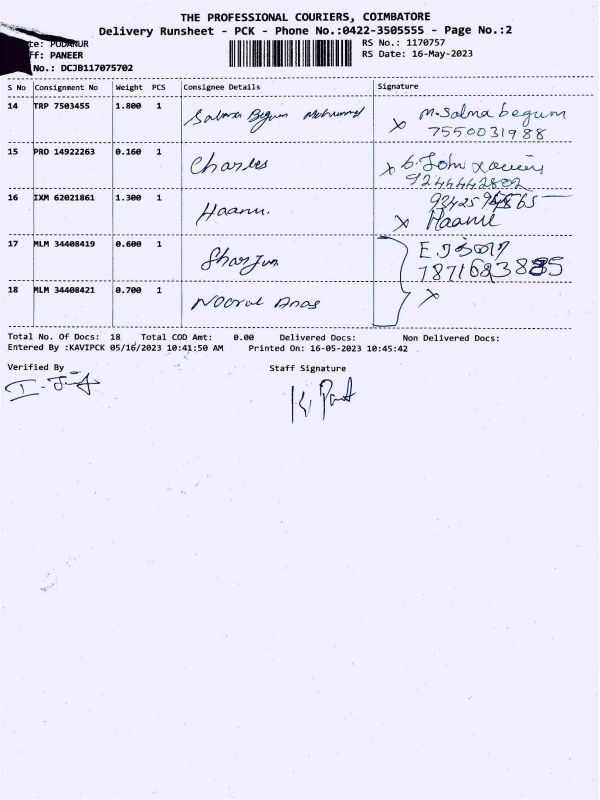 THE PROFESSIONAL COURIERS, COIMBATORE
Delivery Runsheet - PCK - Phone No.:0422-3505555 - Page No.:2
te: PODANUR
RS No.: 1170757
ff: PANEER
RS Date: 16-May-2023
No.: DCJB117075702
S No Consignment No Weight PCS Consignee Details Signature
14 TRP 7503455 1.800 1 Salma Begum M. Salma begum
7550031988
15 PRO 14922263 0.160 1 Charles John
9244442802
16 IXM 62021861 1.300 1 Haanu.
17 MLM 34408419 0.600 1
18 MLM 34408421 0.700 1 Noorul Anas
Total No. Of Docs: 18 Total COD Amt: 0.00 Delivered Docs: Non Delivered Docs:
Entered By :KAVIPCK 05/16/2023 10:41:50 AM Printed On: 16-05-2023 10:45:42
Verified By Staff Signature